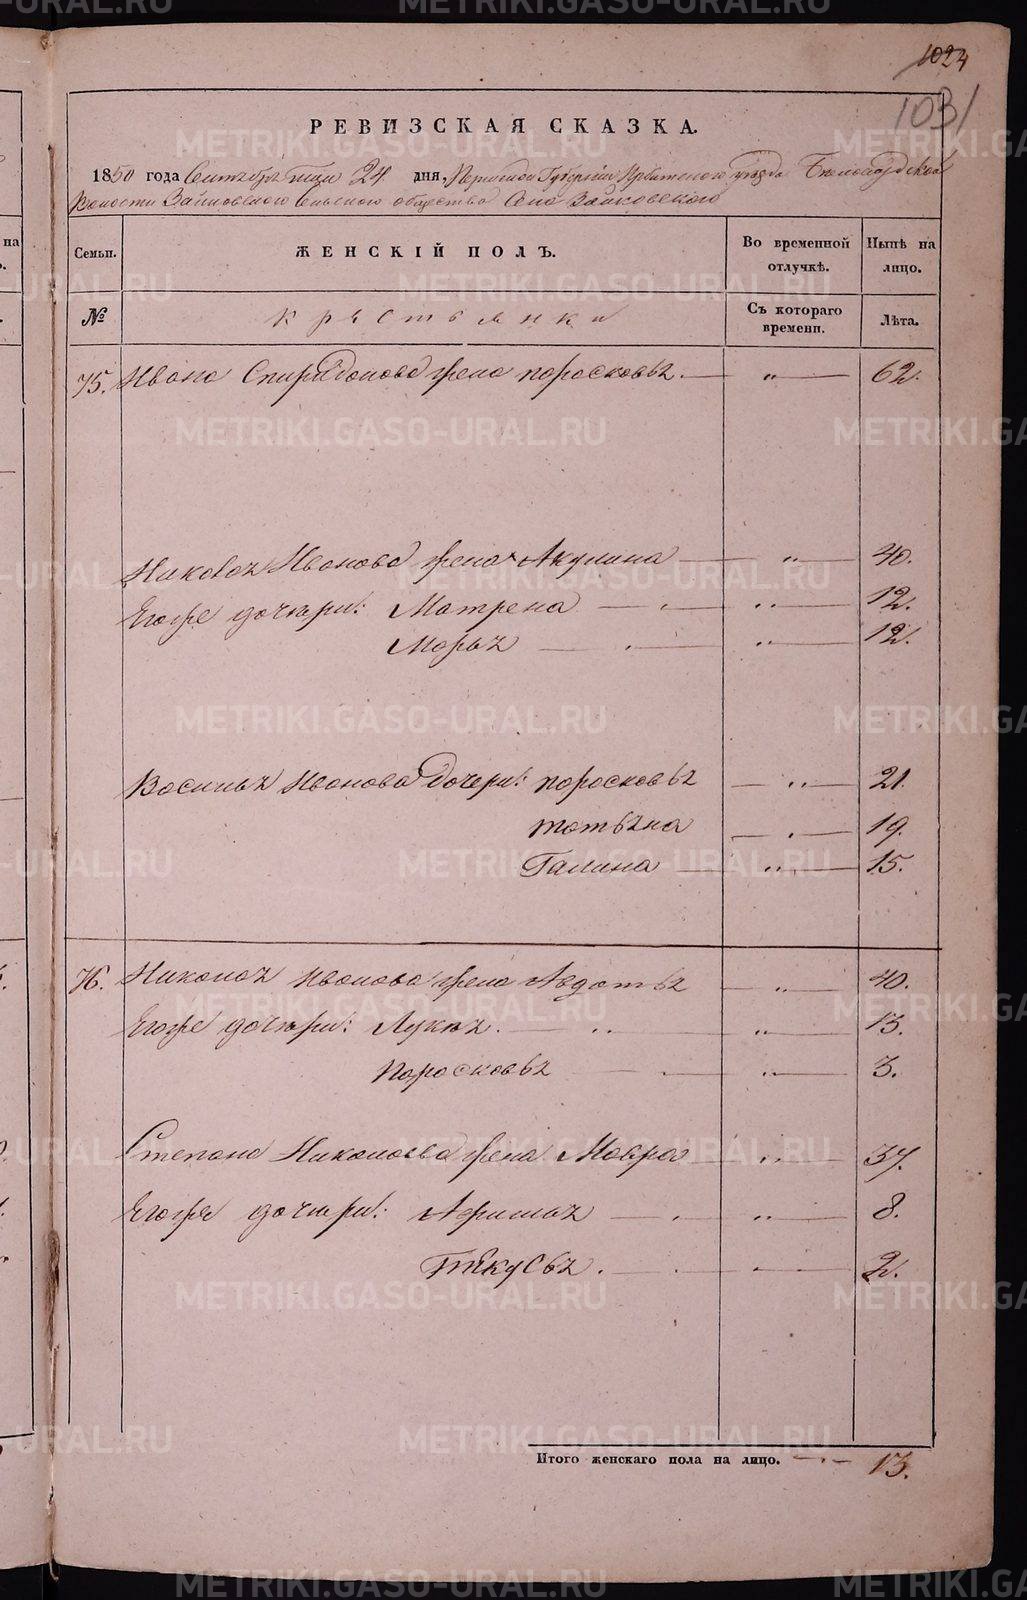 1024
1031
РЕВИЗСКАЯ СКАЗКА.
1850 года Сентября 24 дня, Пермской Губернии Ирбитского уезда Белослудской
Волости Зайковского Сельского общества Села Зайковского
Семьи. ЖЕНСКІЙ ПОЛЪ. Во временной отлучкѣ. Нынѣ на лицо.
№ Крестьянки Съ котораго времени. Лѣта.
75. Ивана Спиридонова жена Парасковья — „ — 62.
Николая Иванова жена Акулина — „ — 40.
Егоже дочери: Матрена — „ — 12.
Марья — „ — 12.
Василья Иванова дочери: Парасковья — „ — 21.
Татьяна — „ — 19.
Галина — „ — 15.
76. Николая Иванова жена Авдотья — „ — 40.
Егоже дочери: Лукия — „ — 13.
Парасковья — „ — 3.
Степана Николаева жена Мавра — „ — 37.
Егоже дочери: Афимья — „ — 8.
Текусья. — „ — 2.
Итого женскаго пола на лицо. — 13.
METRIKI.GASO-URAL.RU